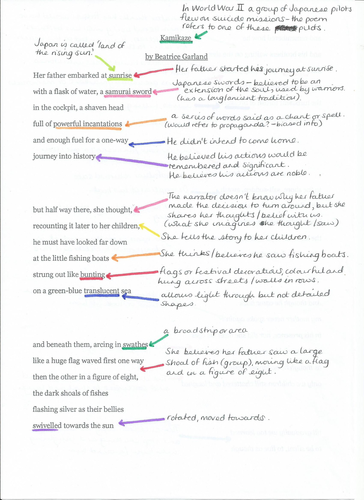 In World War II a group of Japanese pilots
flew on suicide missions - the poem
refers to one of these pilots.
Kamikaze
Japan is called 'land of
the rising sun'.
by Beatrice Garland
Her father embarked at sunrise
Her father started her journey at sunrise.
with a flask of water, a samurai sword
Japanese swords - believed to be an
extension of the soul, used by warriors.
(has a long/ancient tradition).
in the cockpit, a shaven head
full of powerful incantations
a series of words said as a chant or spell.
(would refer to propaganda? - biased info)
and enough fuel for a one-way
He didn't intend to come home.
journey into history
He believed his actions would be
remembered and significant.
He believes his actions are noble.
but half way there, she thought,
The narrator doesn't know why her father
made the decision to turn around, but she
shares her thoughts/belief with us
(what she imagines she thought/saw)
recounting it later to her children,
She tells the story to her children.
he must have looked far down
at the little fishing boats
She thinks/believes he saw fishing boats.
strung out like bunting
flags or festival decorations, colourful and
hung across streets/walls in rows.
on a green-blue translucent sea
allows light through but not detailed
shapes
and beneath them, arcing in swathes
a broad strip or area
like a huge flag waved first one way
She believes her father saw a large
shoal of fish (group), moving like a flag
and in a figure of eight.
then the other in a figure of eight,
the dark shoals of fishes
flashing silver as their bellies
swivelled towards the sun
rotated, moved towards.